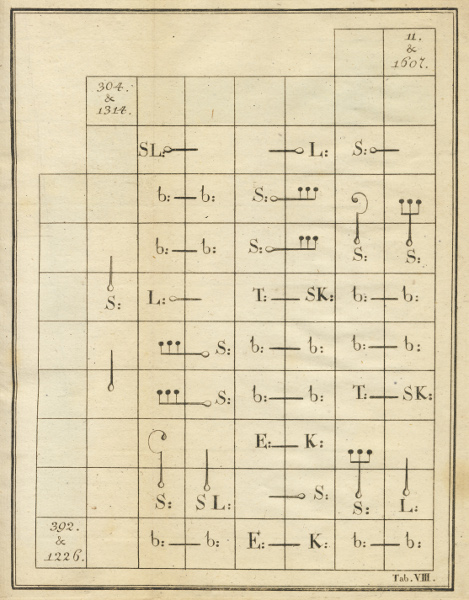 11.
&
1607.
304.
&
1314.
SL: L: S:
b: b: S:
b: b: S: S: S:
S: L: T: SK: b: b:
S: b: b: b: b:
S: b: b: T: SK:
E: K:
S: SL: S: S: L:
392.
&
1226.
b: b: E: K: b: b:
Tab. VIII.